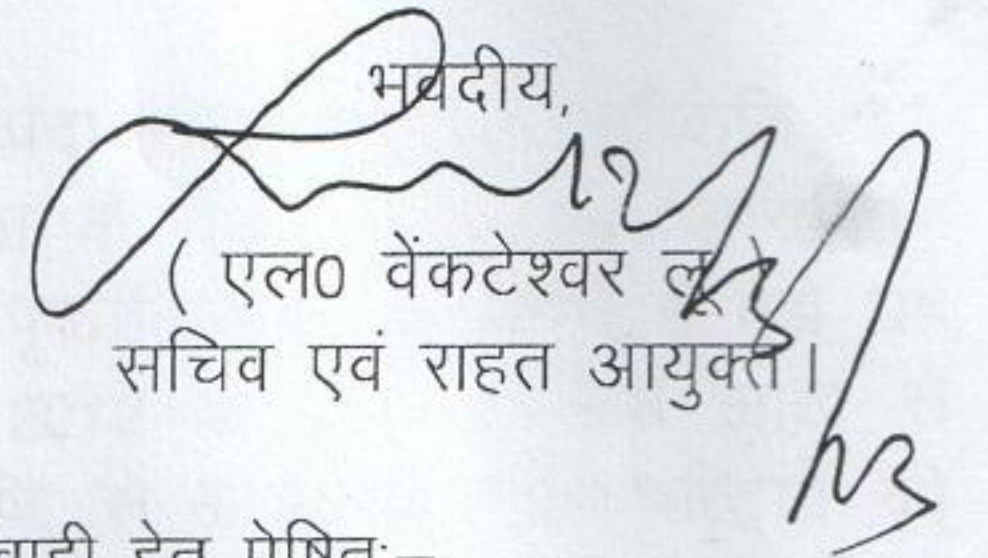 भवदीय,
( एल0 वेंकटेश्वर लू )
सचिव एवं राहत आयुक्त।
हेतु प्रेषितः–